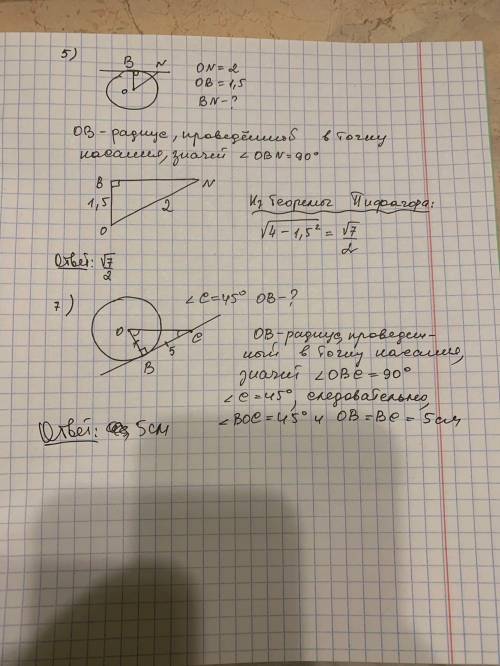 5)
B N
O
ON=2
OB=1,5
BN-?
OB-радиус, проведённый в точку
касания, значит ∠OBN=90°
B N
1,5 2
O
Из теоремы Пифагора:
√(4-1,5²) = √7/2
Ответ: √7/2
7)
∠C=45° OB-?
O C
5
B
OB-радиус, проведен-
ный в точку касания,
значит ∠OBC=90°
∠C=45°, следовательно,
∠BOC=45° и OB=BC=5см
Ответ: 5см